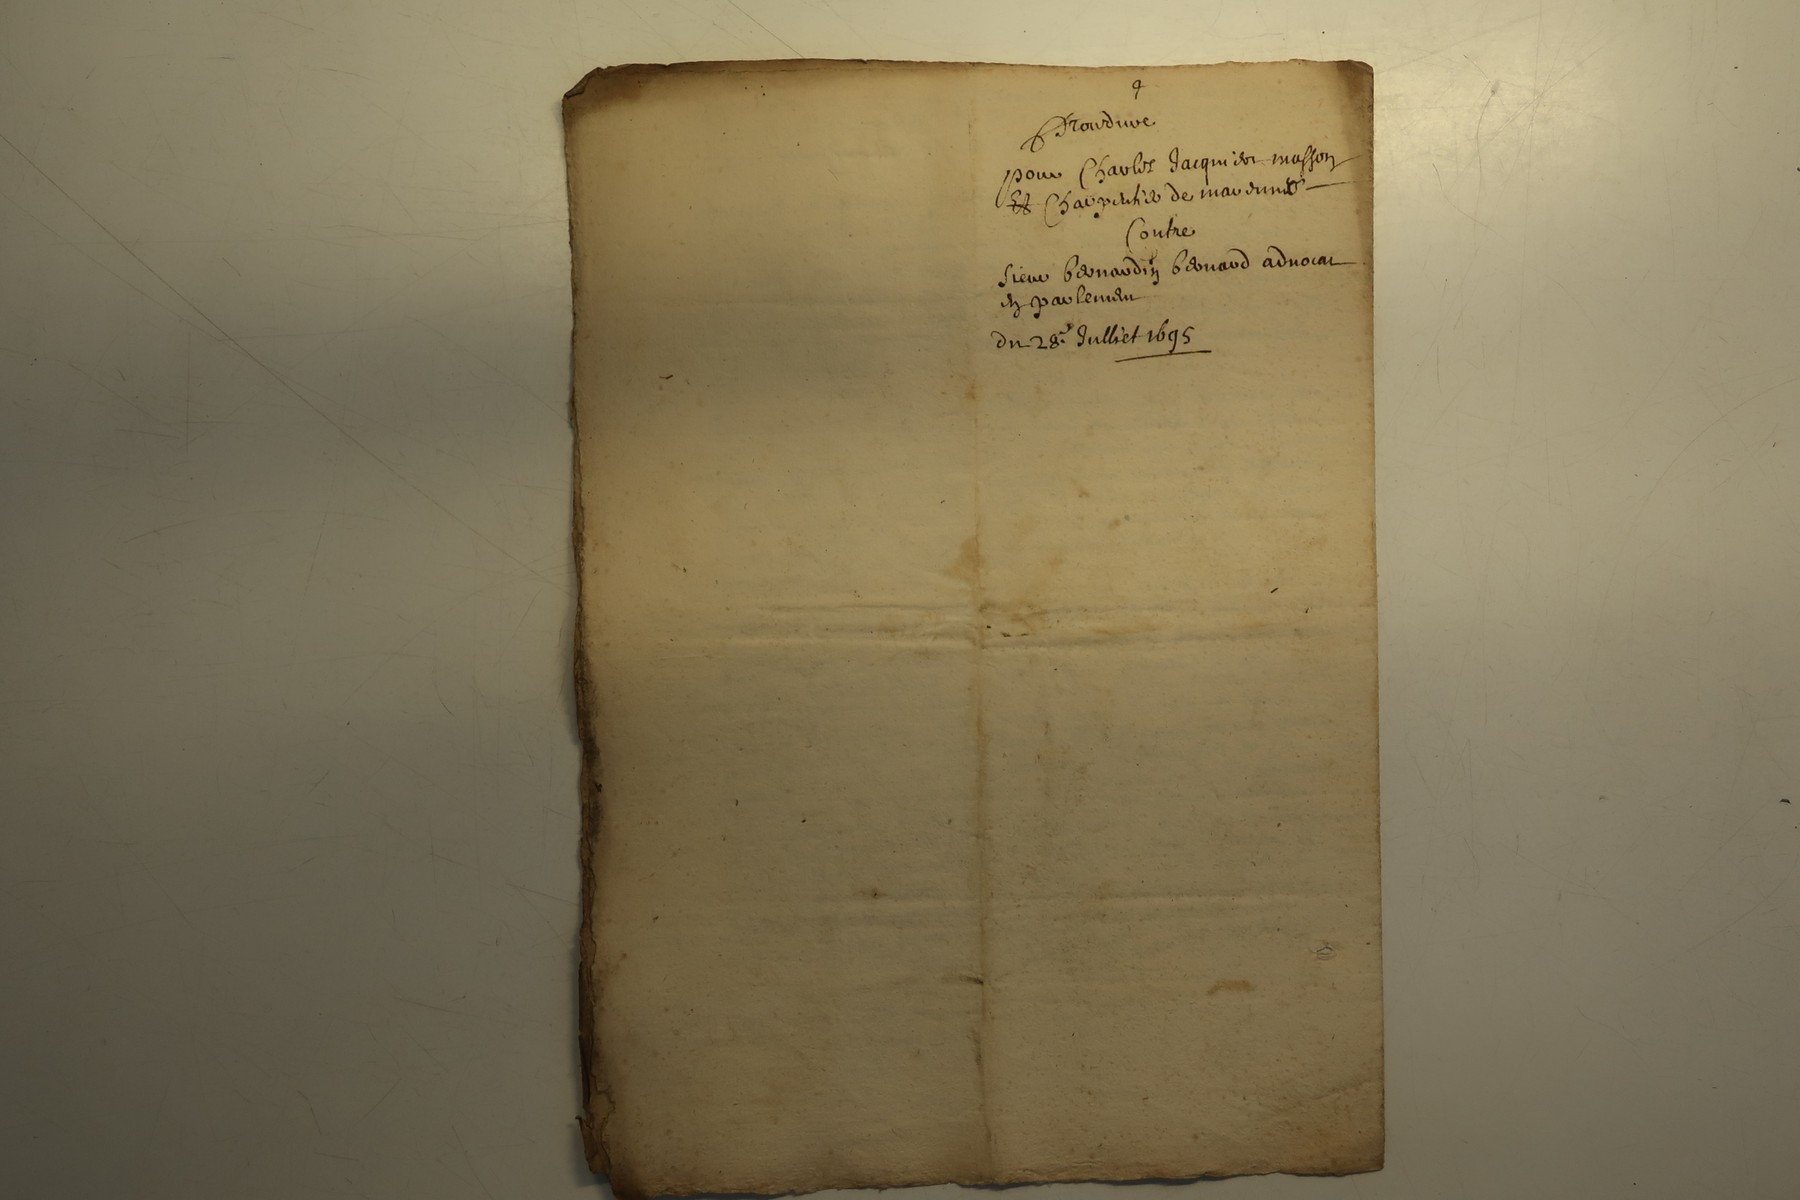 9
Procedure
pour Charles Jacquier masson
Et Charpentie de
Contre
Sieur bernardin bernard advocat
en parlement
du 28e Julliet 1695